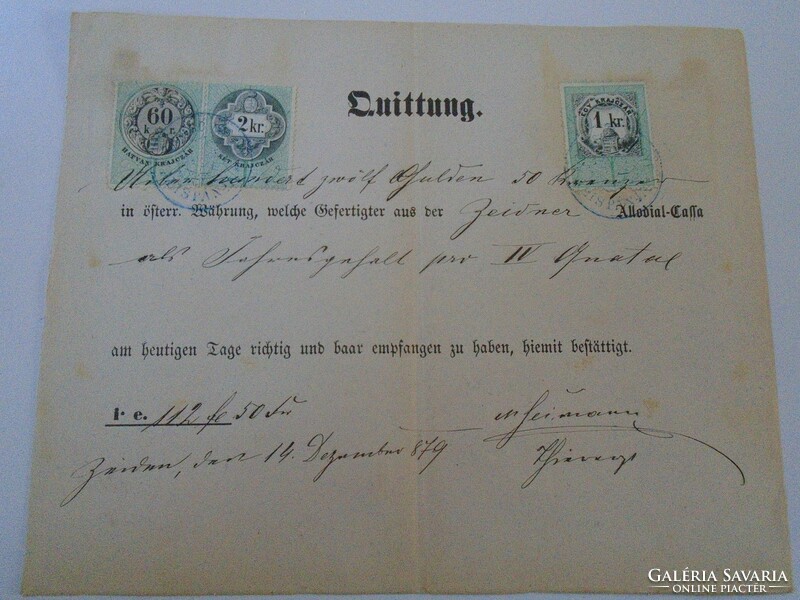 Quittung.
60
kr.
HATVAN KRAJCZÁR
2 kr.
KÉT KRAJCZÁR
EGY KRAJCZÁR
1 kr.
hundert zwölf Gulden 50 Kreuzer
in österr. Währung, welche Gefertigter aus der Zeidner Allodial-Cassa
als Jahresgehalt pro IV Quatal
am heutigen Tage richtig und baar empfangen zu haben, hiemit bestättigt.
I e. 112 fl 50 Kr
Zeiden, den 14. Dezember 879
Thierarzt
GALÉRIA SAVARIA
ONLINE PIACTÉR